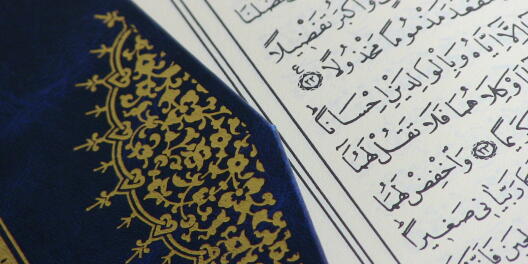 وَأَكْبَرُ تَفْضِيلًا
فَتَقْعُدَ مَذْمُومًا مَخْذُولًا ۝٢٢
إِلَّا إِيَّاهُ وَبِالْوَالِدَيْنِ إِحْسَانًا
أَوْ كِلَاهُمَا فَلَا تَقُلْ لَهُمَا
كَرِيمًا ۝٢٣ وَاخْفِضْ لَهُمَا
رَبَّيَانِي صَغِيرًا